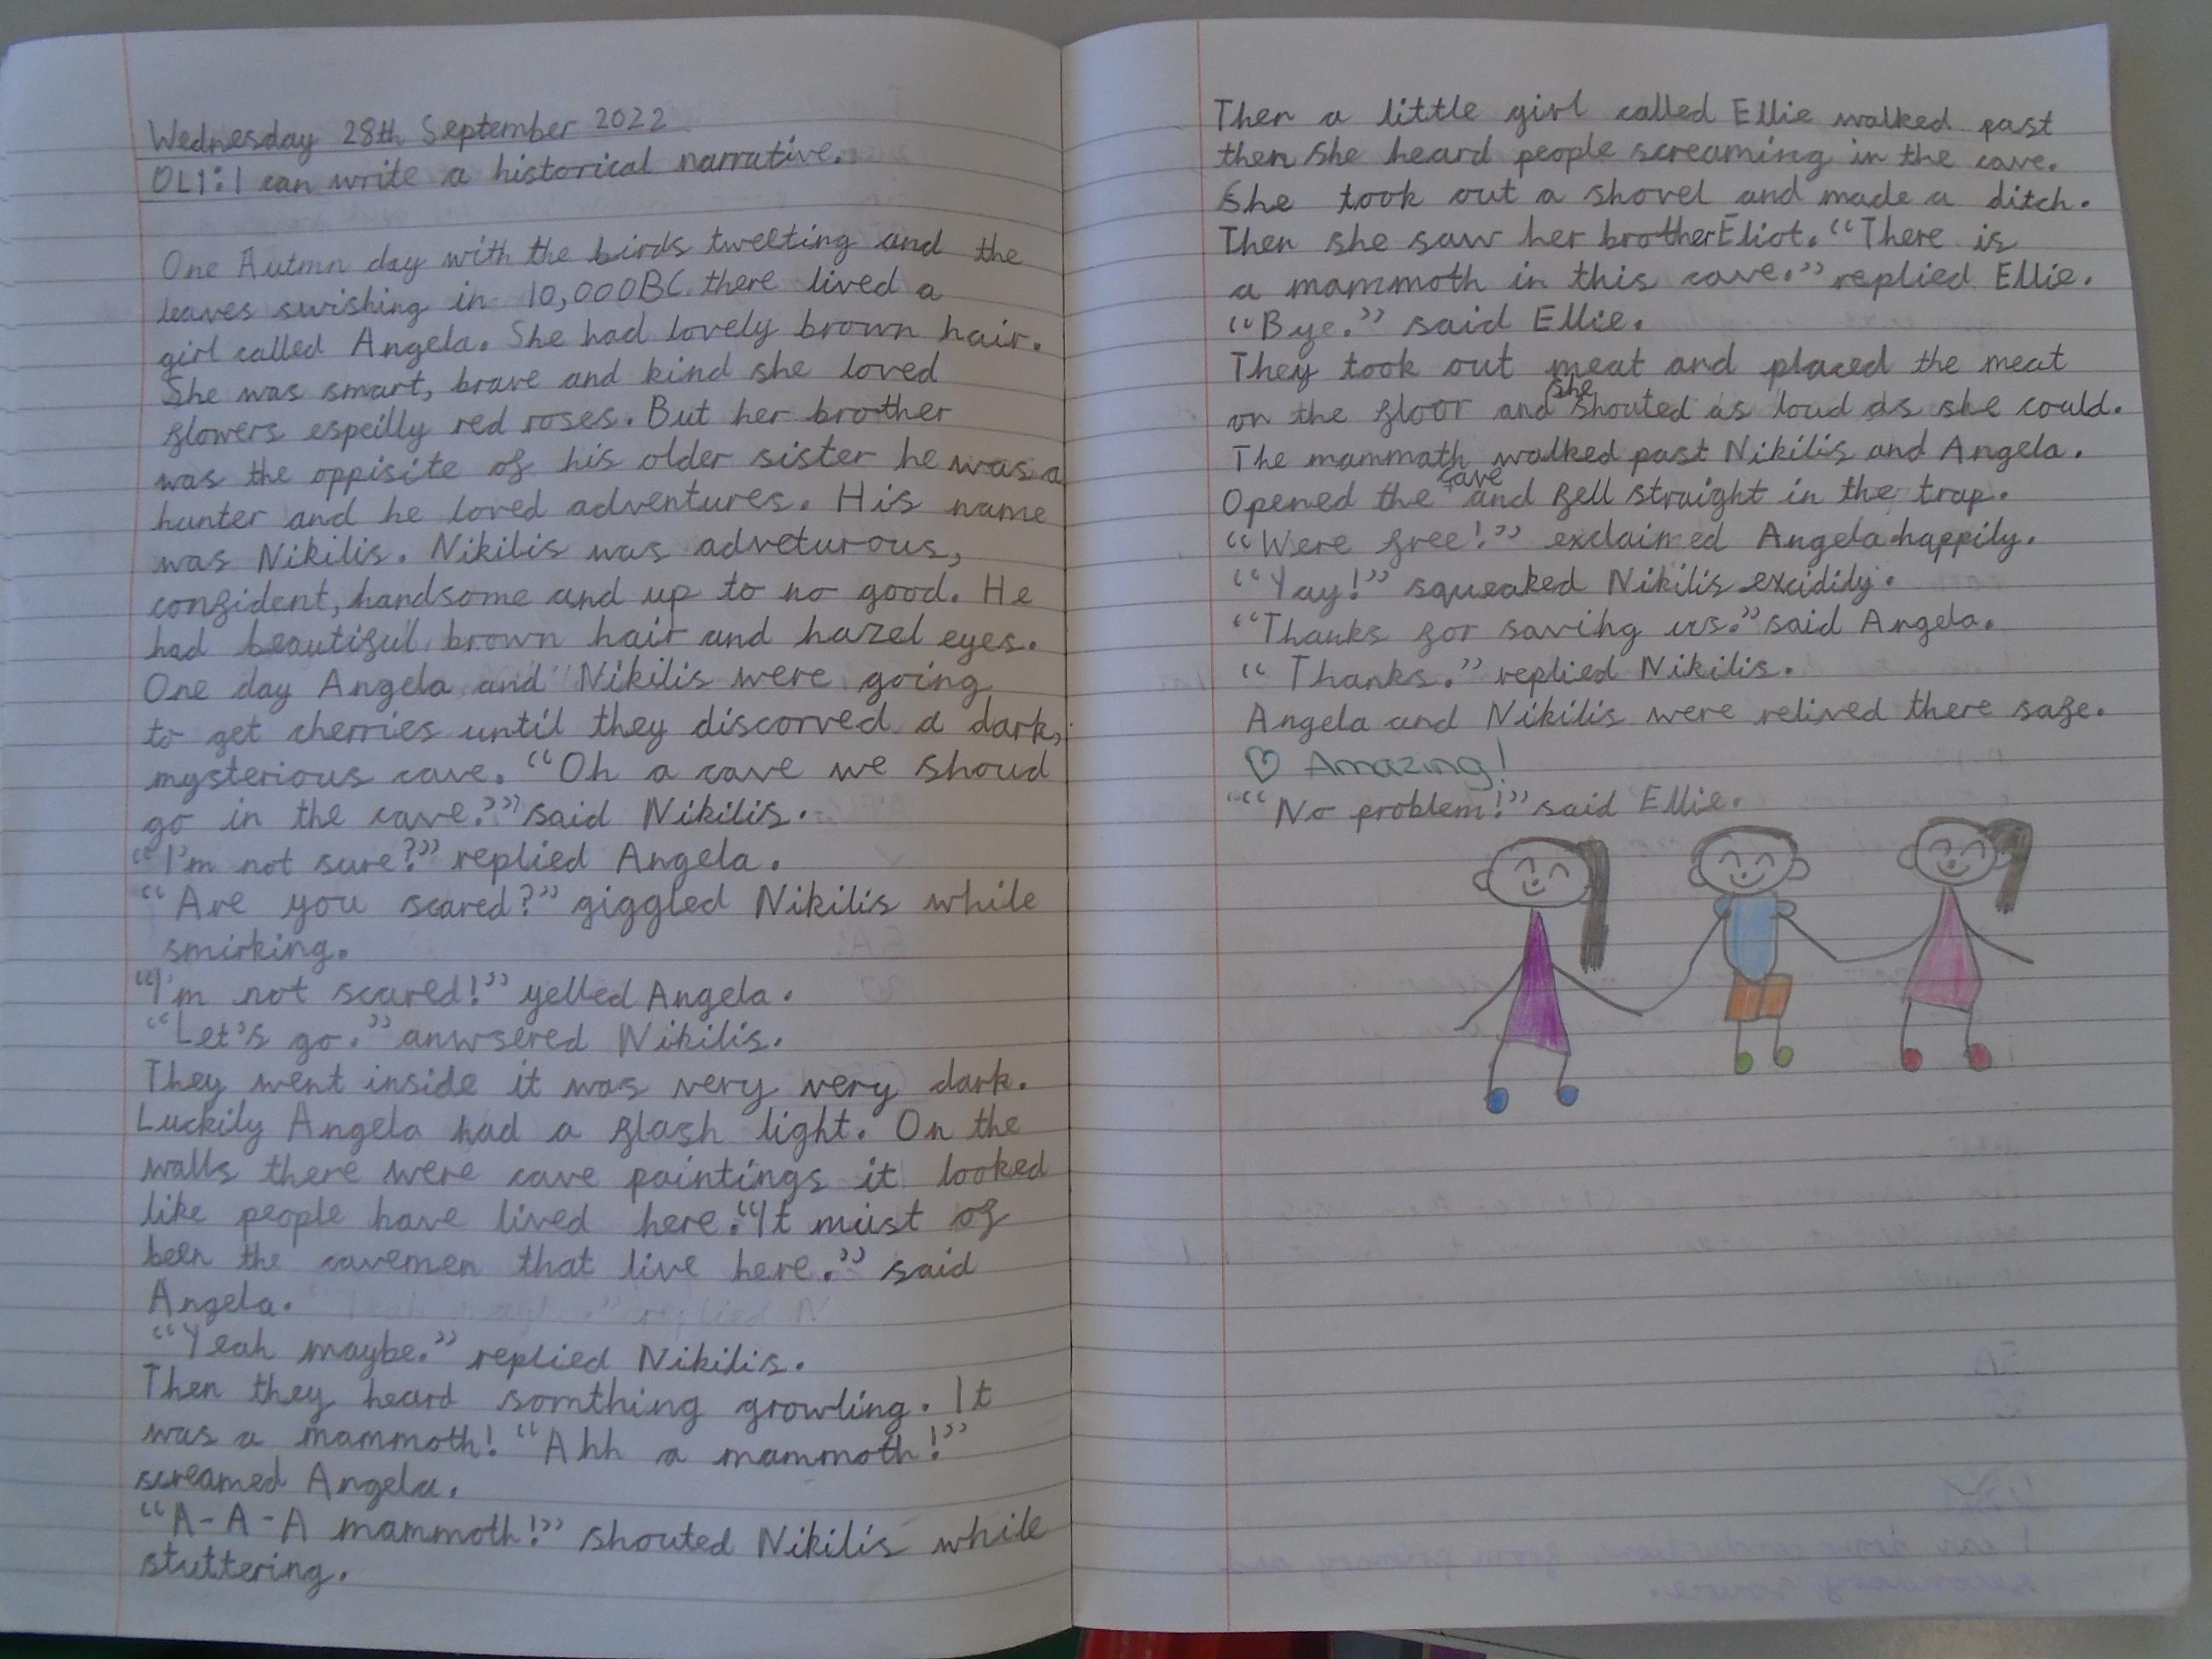 Wednesday 28th September 2022
OL1: I can write a historical narrative.
One Autmn day with the birds tweeting and the
leaves swishing in 10,000BC there lived a
girl called Angela. She had lovely brown hair.
She was smart, brave and kind she loved
flowers espeilly red roses. But her brother
was the oppisite of his older sister he was a
hunter and he loved adventures. His name
was Nikilis. Nikilis was adveturous,
confident, handsome and up to no good. He
had beautiful brown hair and hazel eyes.
One day Angela and Nikilis were going
to get cherries until they discorved a dark,
mysterious cave. "Oh a cave we shoud
go in the cave." said Nikilis.
"I'm not sure?" replied Angela.
"Are you scared?" giggled Nikilis while
smirking.
"I'm not scared!" yelled Angela.
"Let's go." anwsered Nikilis.
They went inside it was very very dark.
Luckily Angela had a flash light. On the
walls there were cave paintings it looked
like people have lived here. "It must of
been the cavemen that live here." said
Angela.
"Yeah maybe." replied Nikilis.
Then they heard somthing growling. It
was a mammoth! "Ahh a mammoth!"
screamed Angela.
"A-A-A mammoth!" shouted Nikilis while
stuttering.
Then a little girl called Ellie walked past
then she heard people screaming in the cave.
She took out a shovel and made a ditch.
Then she saw her brother Eliot. "There is
a mammoth in this cave." replied Ellie.
"Bye." said Ellie.
They took out meat and placed the meat
on the floor and she shouted as loud as she could.
The mammath walked past Nikilis and Angela.
Opened the cave and fell straight in the trap.
"Were free!" exclaimed Angela happily.
"Yay!" squeaked Nikilis excidily.
"Thanks for saving us." said Angela.
"Thanks." replied Nikilis.
Angela and Nikilis were relived there safe.
♡ Amazing!
"No problem!" said Ellie.